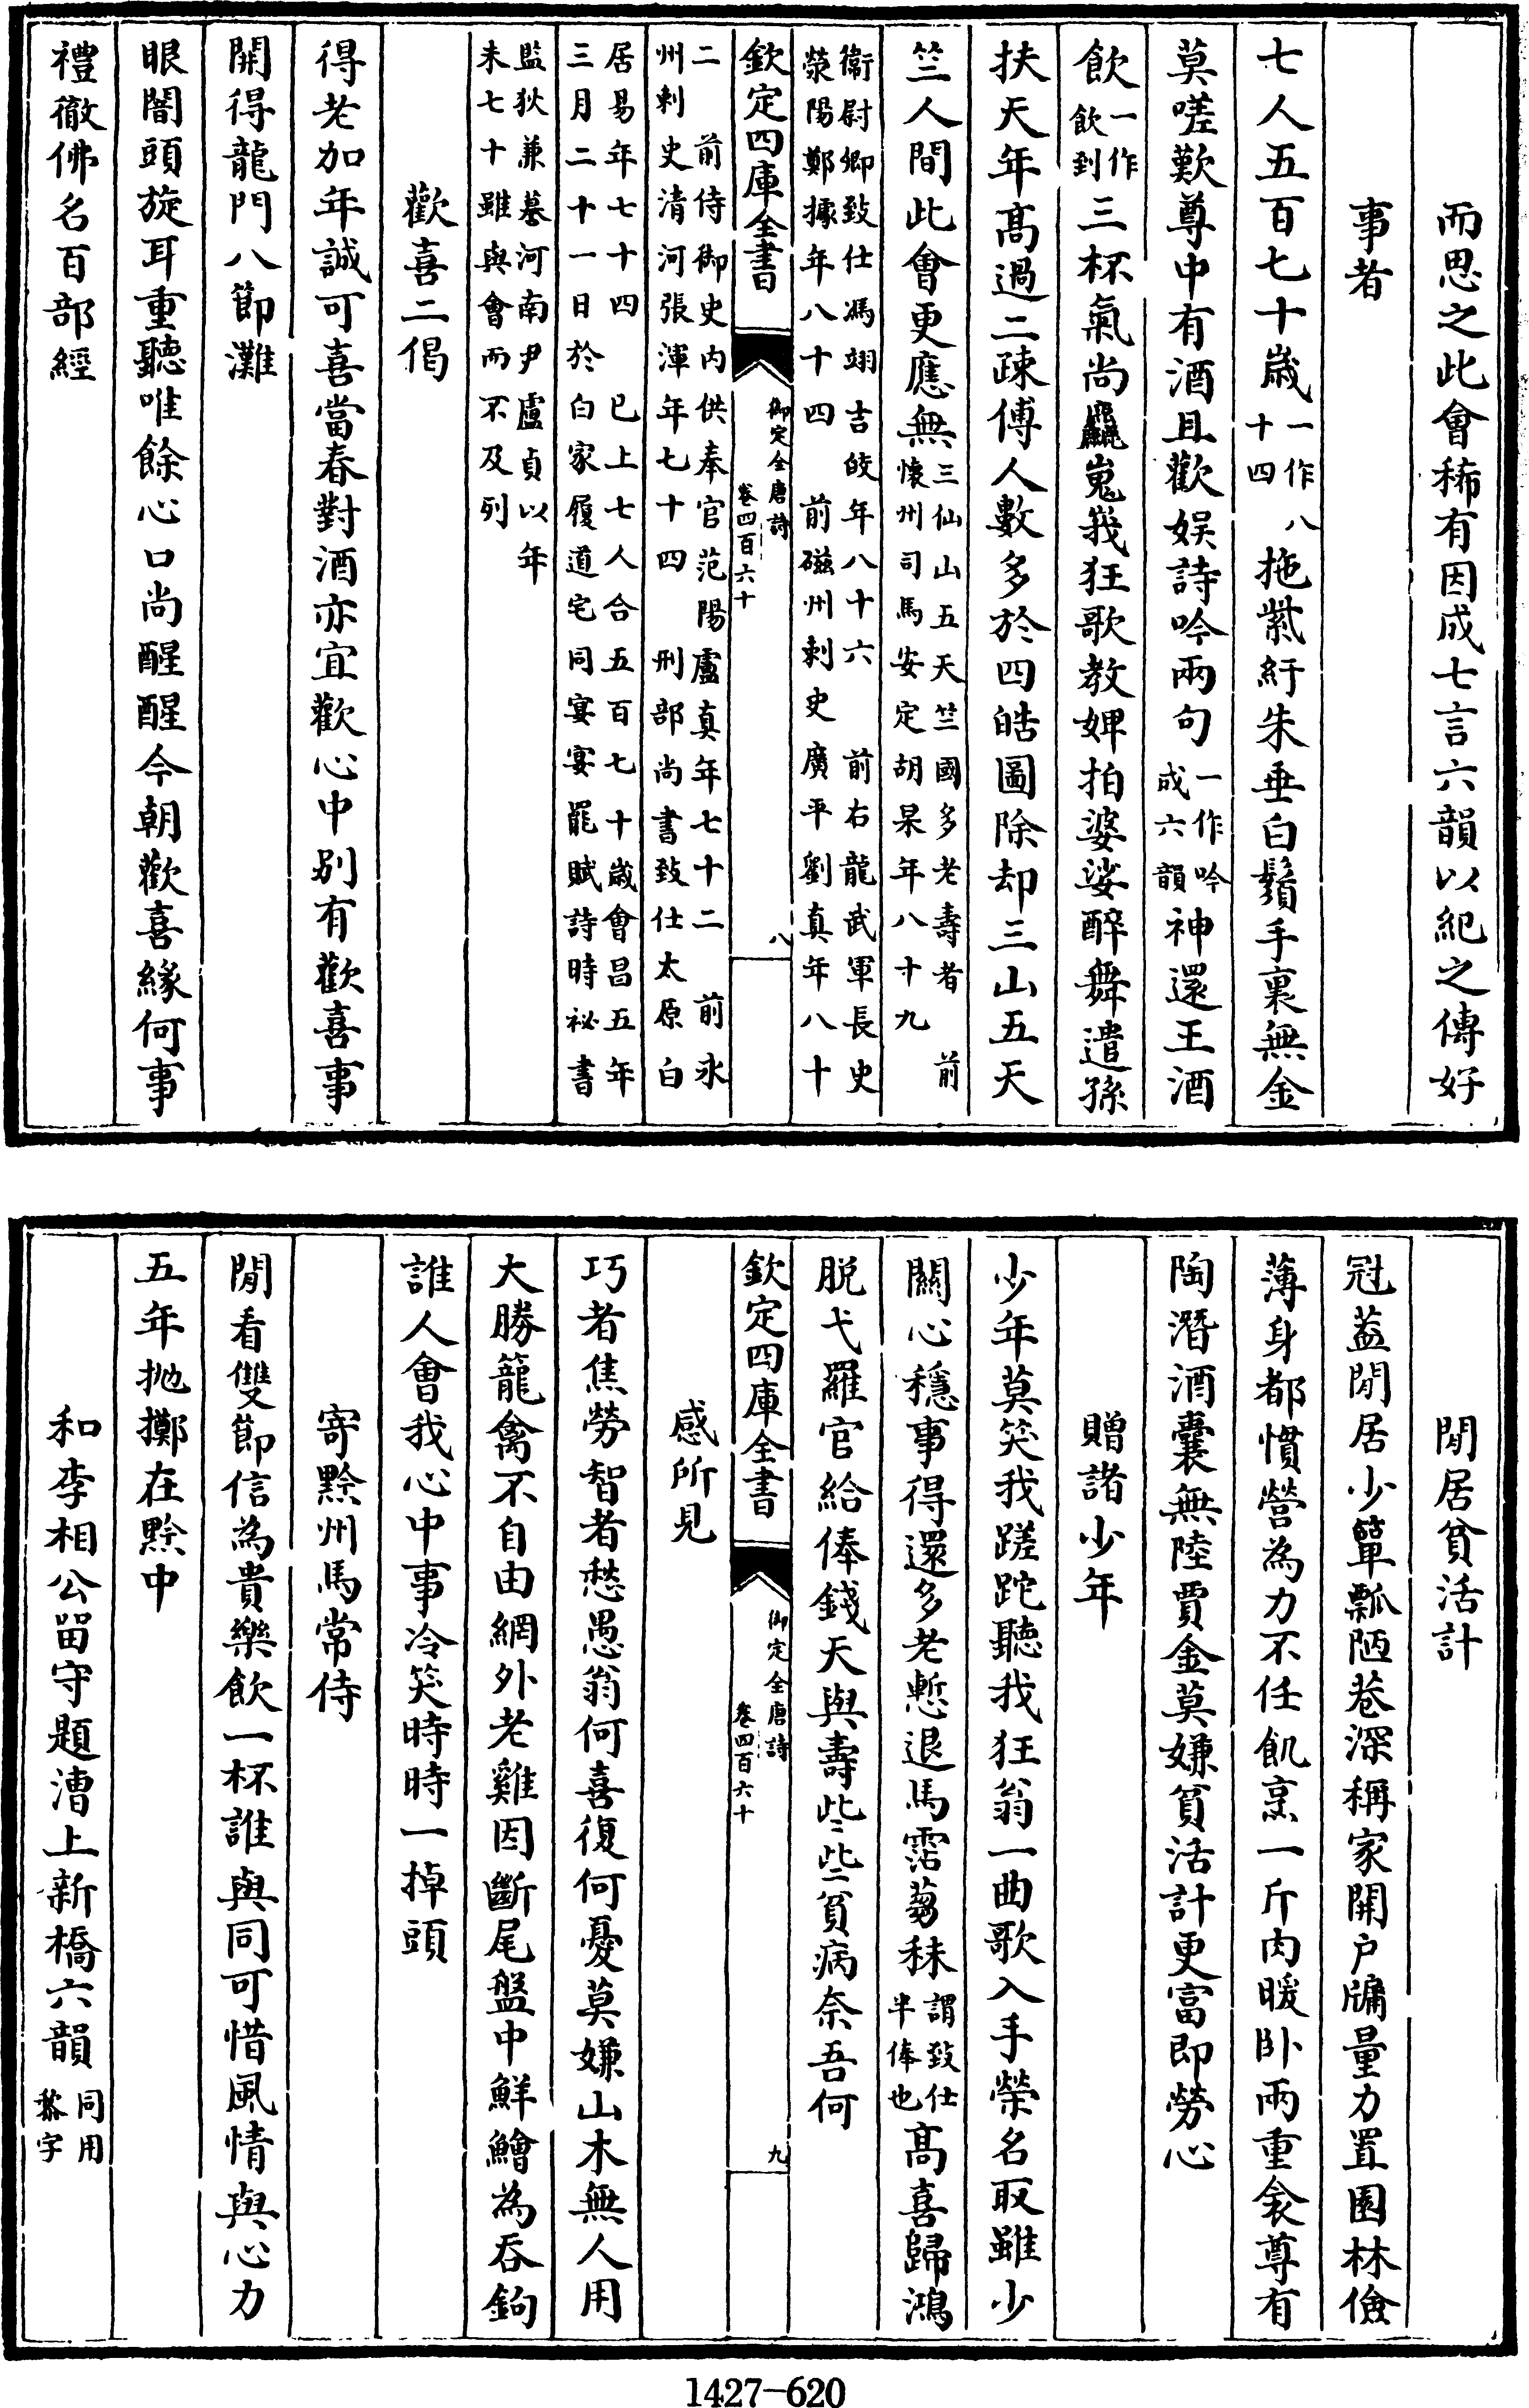 而思之此會稀有因成七言六韻以紀之傳好
事者
七人五百七十歲一作八十四拖紫紆朱垂白鬚手裏無金
莫嗟歎尊中有酒且歡娱詩吟兩句一作吟成六韻神還王酒
飲一作飲到三杯氣尚麤嵬峩狂歌教婢拍婆娑醉舞遣孫
扶天年髙過二疎傅人數多於四皓圖除却三山五天
竺人間此會更應無三仙山五天竺國多老壽者　前懷州司馬安定胡杲年八十九
衛尉卿致仕馮翊吉皎年八十六　前右龍武軍長史滎陽鄭據年八十四　前磁州刺史廣平劉真年八十
欽定四庫全書　御定全唐詩卷四百六十　八
二　前侍御史内供奉官范陽盧真年七十二　前永州刺史清河張渾年七十四　刑部尚書致仕太原白
居易年七十四　已上七人合五百七十歲會昌五年三月二十一日於白家履道宅同宴宴罷賦詩時祕書
監狄兼謩河南尹盧貞以年未七十雖與會而不及列
歡喜二偈
得老加年誠可喜當春對酒亦宜歡心中别有歡喜事
開得龍門八節灘
眼闇頭旋耳重聽唯餘心口尚醒醒今朝歡喜緣何事
禮徹佛名百部經
閒居貧活計
冠蓋閒居少簞瓢陋巷深稱家開户牖量力置園林儉
薄身都慣營為力不任飢烹一斤肉暖卧兩重衾尊有
陶潛酒囊無陸賈金莫嫌貧活計更富即勞心
贈諸少年
少年莫笑我蹉跎聽我狂翁一曲歌入手榮名取雖少
關心穩事得還多老慙退馬霑芻秣謂致仕半俸也髙喜歸鴻
脱弋羅官給俸錢天與壽些些貧病奈吾何
欽定四庫全書　御定全唐詩卷四百六十　九
感所見
巧者焦勞智者愁愚翁何喜復何憂莫嫌山木無人用
大勝籠禽不自由網外老雞因斷尾盤中鮮鱠為吞鉤
誰人會我心中事冷笑時時一掉頭
寄黔州馬常侍
閒看雙節信為貴樂飲一杯誰與同可惜風情與心力
五年抛擲在黔中
和李相公留守題漕上新橋六韻同用黎字
1427-620